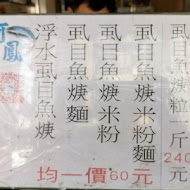 虱目魚焿粒一斤240元
虱目魚焿米粉
虱目魚焿米粉
虱目魚焿麵
浮水虱目魚焿
均一價60元
鳳